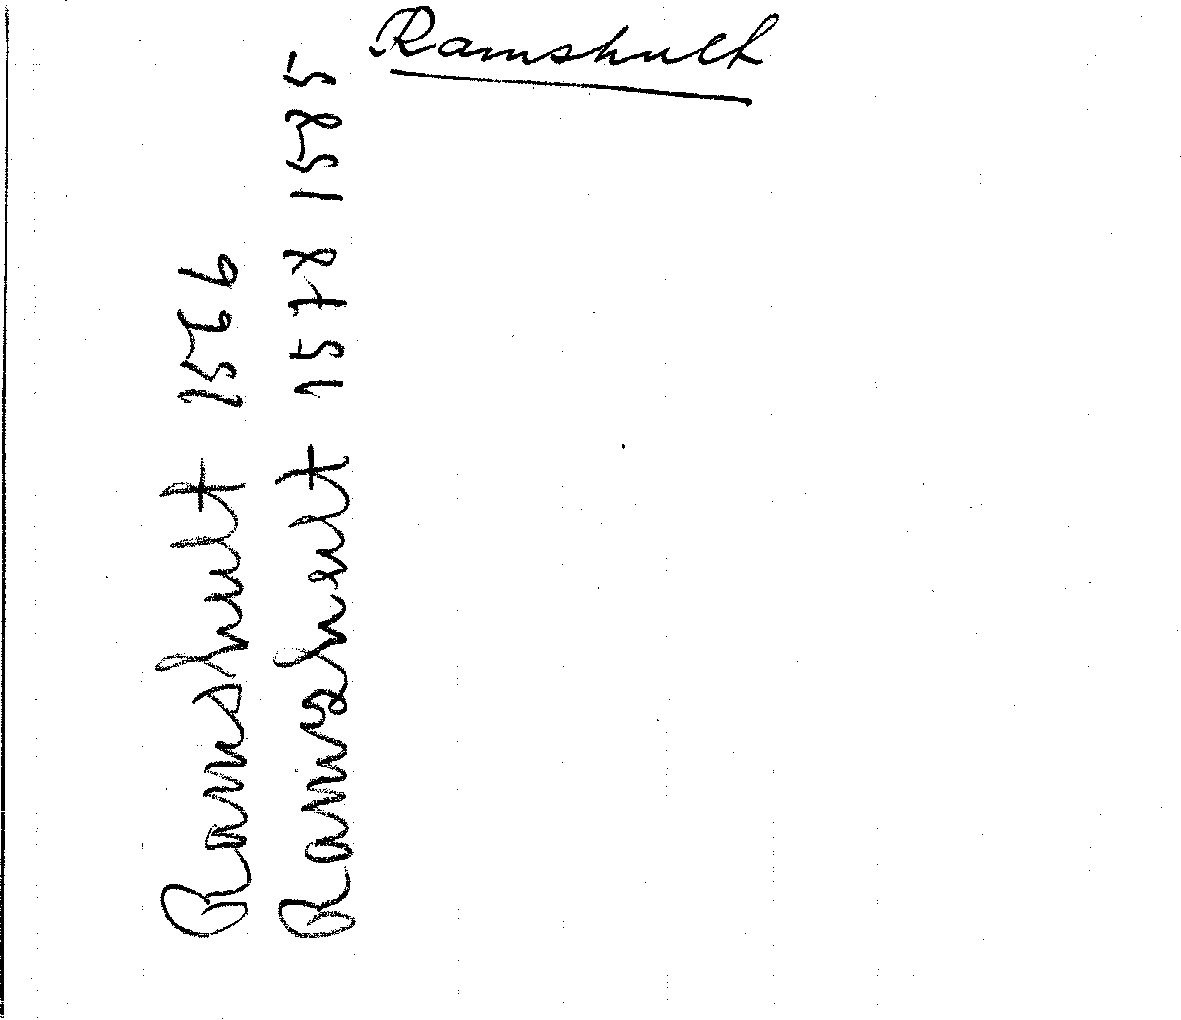 Ramshult
Ramshult 1566
Ramshult 1578 1585